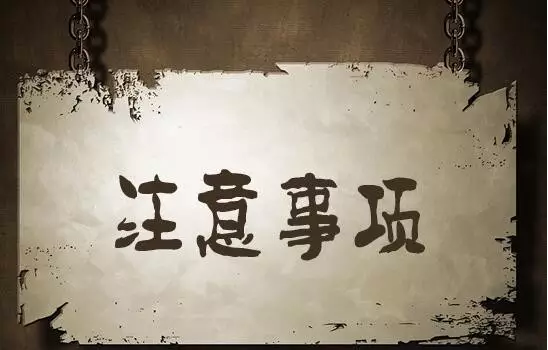 注意事项